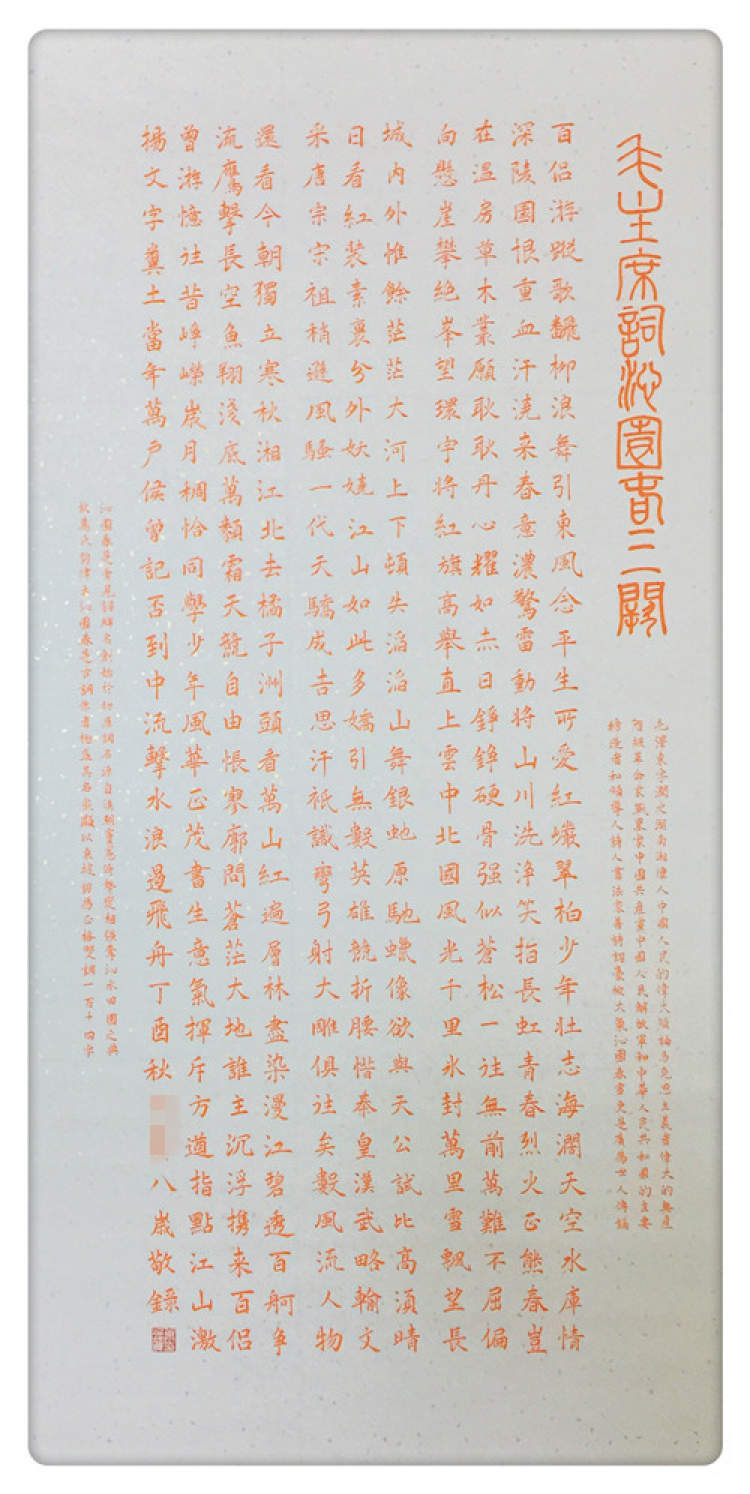 毛主席詞沁園春三闋
毛澤東字潤之湖南湘潭人中國人民的偉大領䄂馬克思主義者偉大的無產
階級革命家戰畧家中國共産黨中國人民解放軍和中華人民共和國的主要
締造者和領導人詩人書法家善詩詞豪放大氣沁園春雪更是廣爲世人傳誦
百侣游蹤歌飜柳浪舞引東風念平生所愛紅巖翠柏少年壯志海濶天空水庫情
深陵園恨重血汗澆来春意濃驚雷動將山川洗浄笑指長虹青春烈火正熊春豈
在温房草木叢願耿耿丹心耀如赤日錚錚硬骨强似蒼松一往無前萬難不屈偏
向懸崖攀绝峯望環宇將紅旗高舉直上雲中北國風光千里氷封萬里雪飄望長
城内外惟餘茫茫大河上下頓失滔滔山舞銀虵原馳蠟像欲與天公試比高湏晴
日看紅装素裹兮外妖嬈江山如此多嬌引無數英雄競折腰惜奉皇漢武略輸文
采唐宗宗祖稍遜風騷一代天驕成吉思汗衹識彎弓射大雕俱往矣數風流人物
還看今朝獨立寒秋湘江北去橘子洲頭看萬山紅遍層林盡染漫江碧透百舸争
流鷹擊長空魚翔淺底萬類霜天競自由悵寥廓問蒼茫大地誰主沉浮携来百侣
曾游憶往昔崢嶸嵗月稠恰同學少年風華正茂書生意氣揮斥方遒指點江山激
揚文字糞土當年萬户侯曾記否到中流擊水浪遏飛舟丁酉秋 八嵗敬録
沁園春是著名詞牌名創始於初唐詞名源自漢朝竇憲倚勢變相强奪沁水田園之典
故 沁園春是古詞 以東坡詞爲正格雙調一百十四字